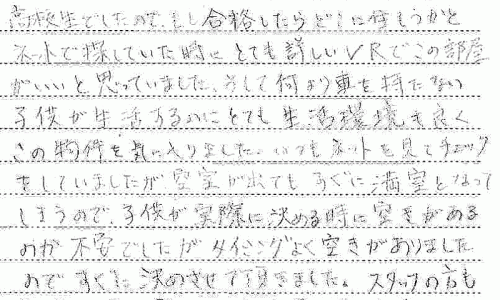 高校生でしたので、もし合格したらどこに住もうかと
ネットで探していた時に とても詳しいVRでこの部屋
がいいと思っていました。そして何より車を持たない
子供が生活するのにとても生活環境も良く
この物件を気に入りました。いつもネットを見てチェック
をしていましたが空室が出てもすぐに満室となって
しまうので、子供が実際に決める時に空きがある
のか不安でしたがタイミングよく空きがありました
のですぐに決めさせて頂きました。スタッフの方も